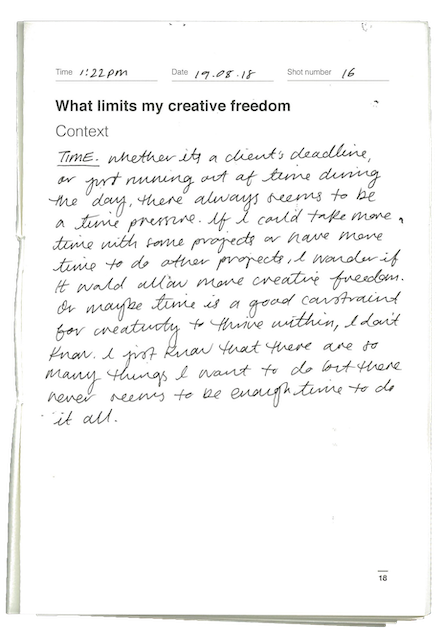 Time 1:22pm Date 19.08.18 Shot number 16
What limits my creative freedom
Context
TIME. Whether its a client's deadline,
or just running out of time during
the day, there always seems to be
a time pressure. If I could take more
time with some projects or have more
time to do other projects, I wonder if
it would allow more creative freedom.
Or maybe time is a good constraint
for creativity to thrive within, I don't
know. I just know that there are so
many things I want to do but there
never seems to be enough time to do
it all.
18